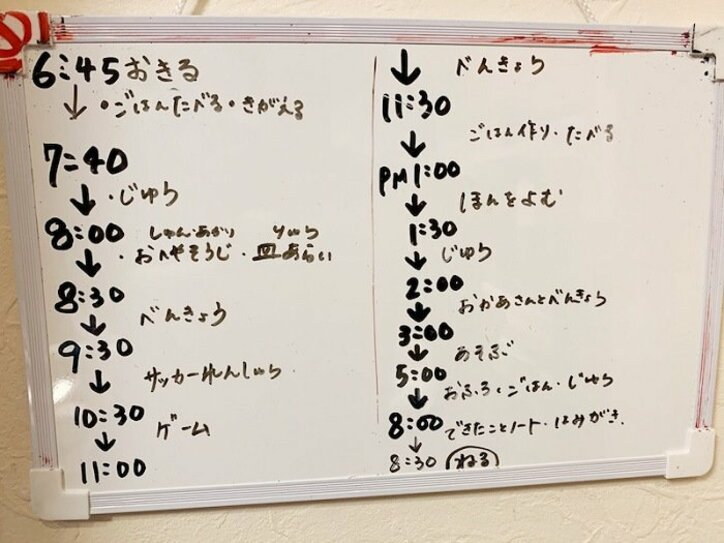 6:45 おきる
↓ ・ごはんたべる・きがえる
7:40
↓ ・じゆう
8:00
↓ ・おへやそうじ・皿あらい
8:30
↓ べんきょう
9:30
↓ サッカーれんしゅう
10:30
↓ ゲーム
11:00
↓ べんきょう
11:30
↓ ごはん作り・たべる
PM 1:00
↓ ほんをよむ
1:30
↓ じゆう
2:00
↓ おかあさんとべんきょう
3:00
↓ あそぶ
5:00
↓ おふろ・ごはん・じゆう
8:00
↓ できたことノート・はみがき
8:30 ねる